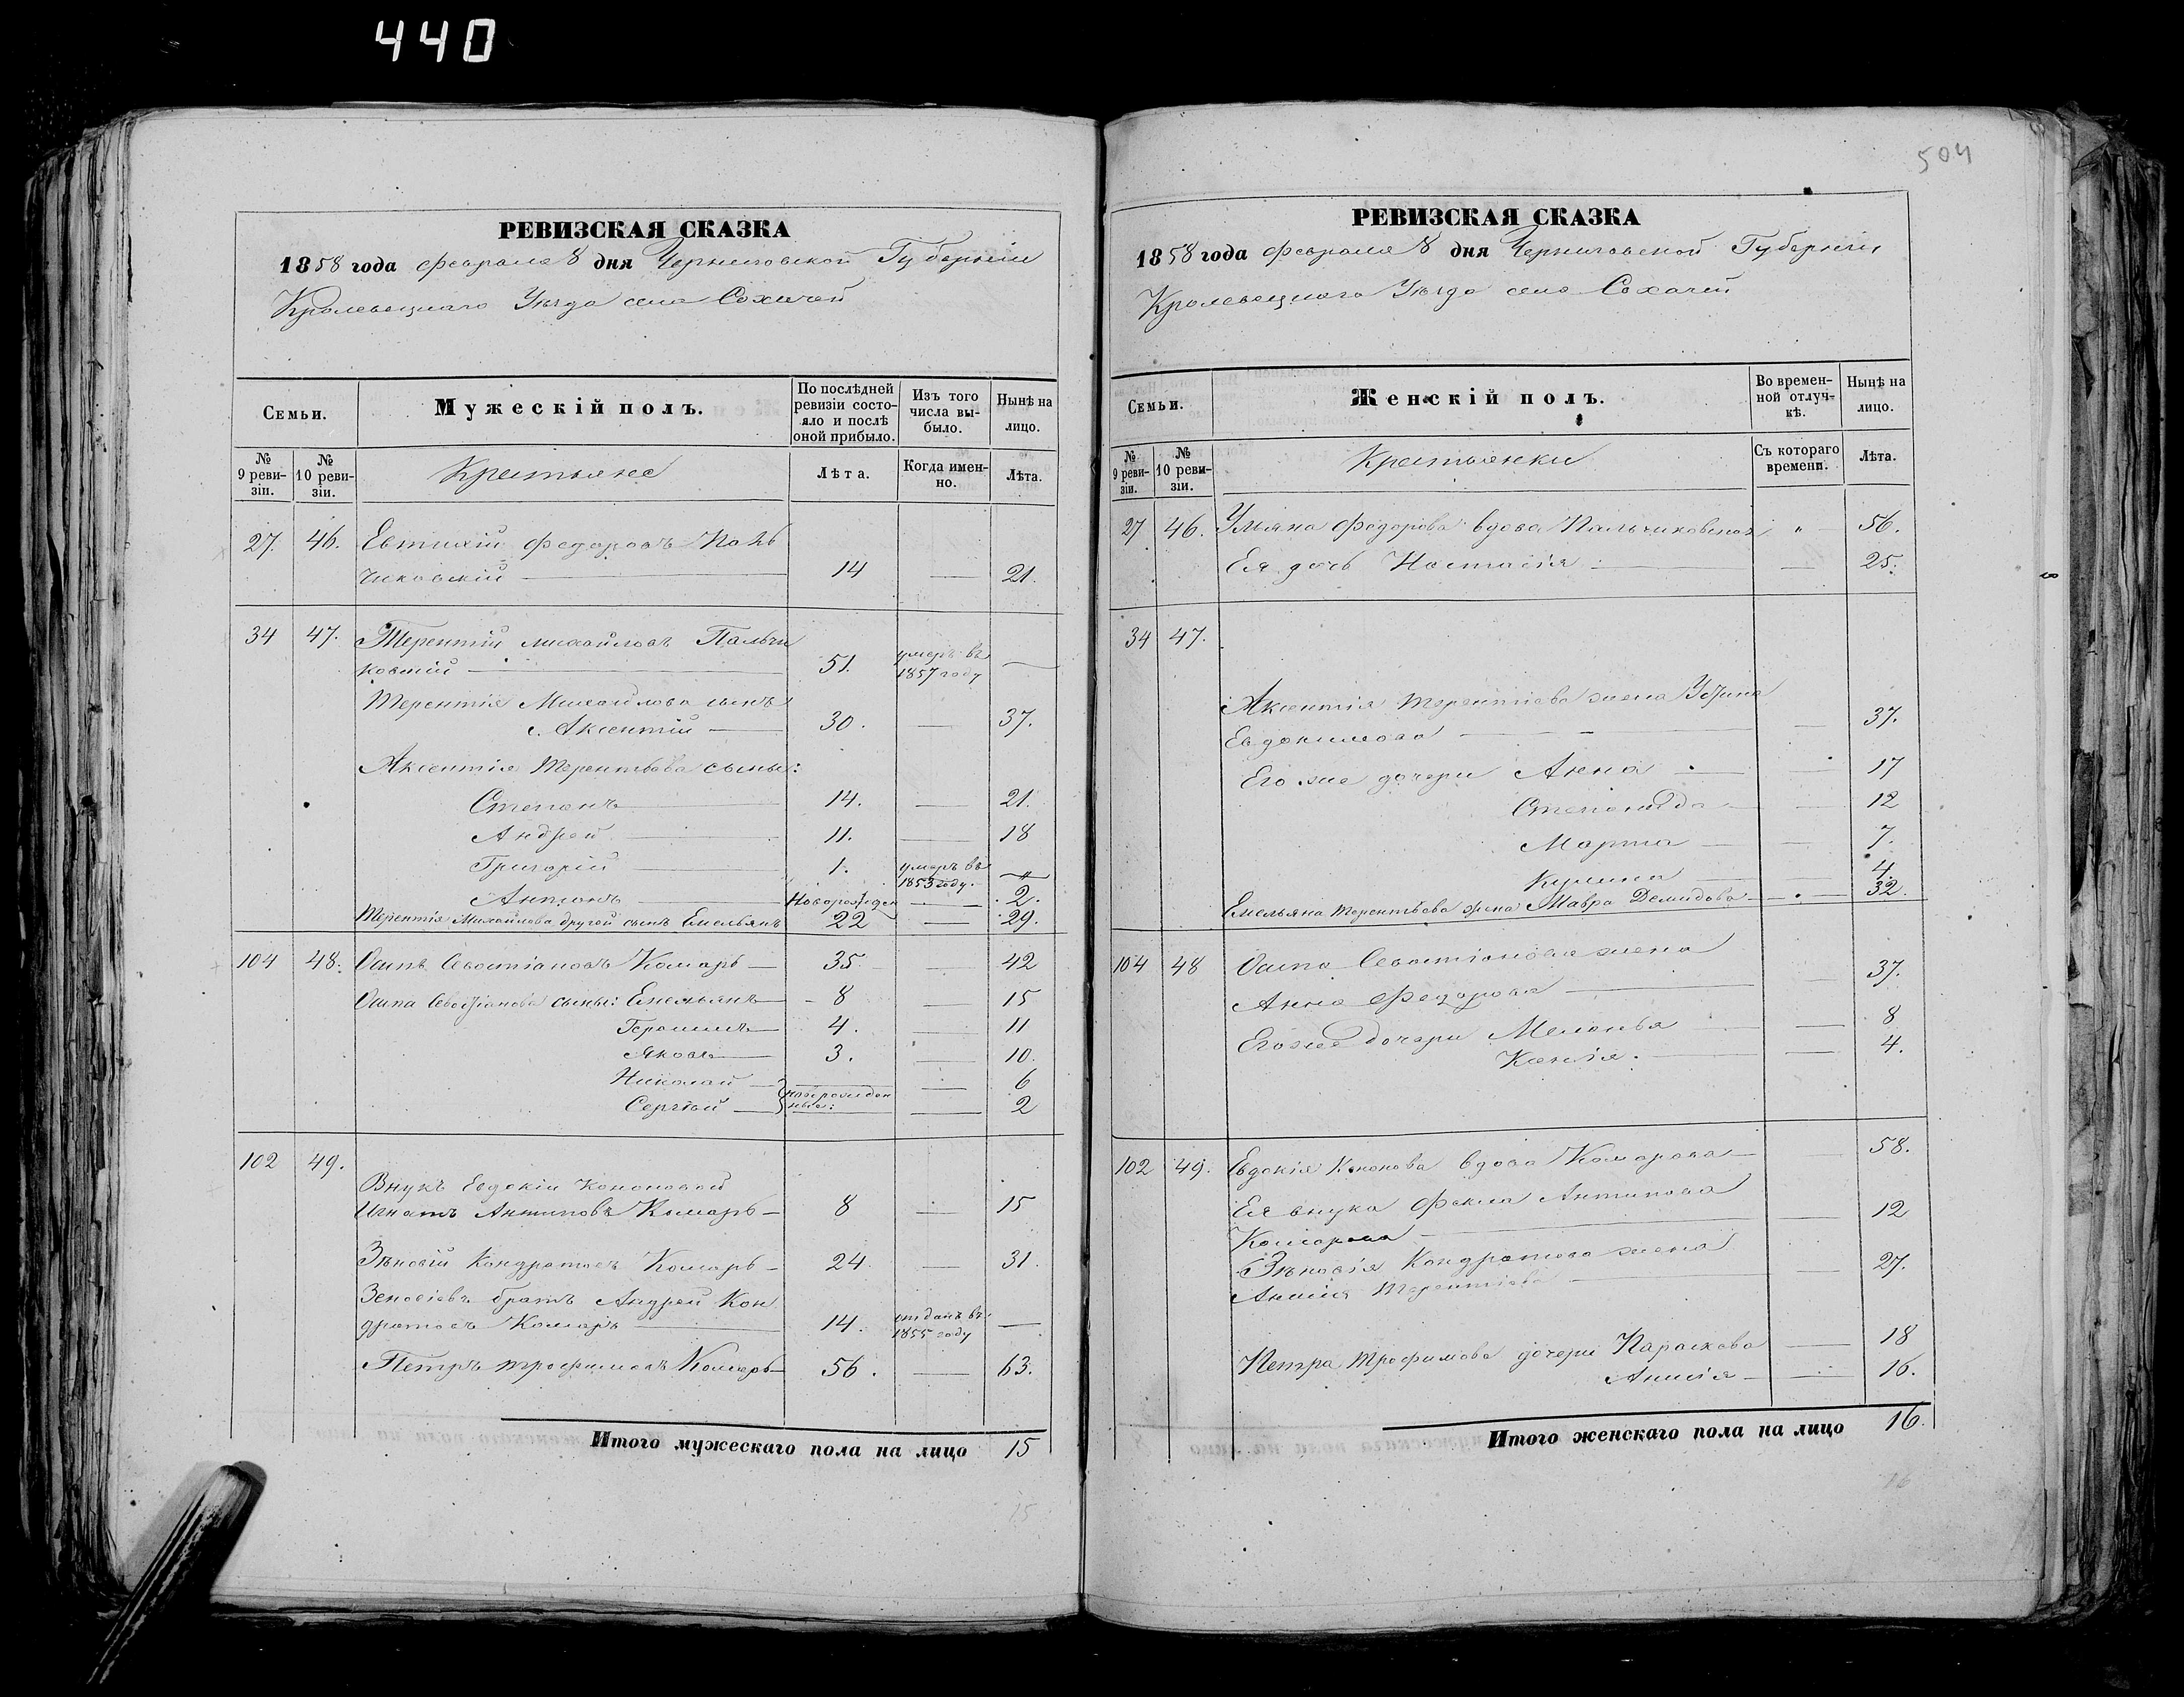 440
РЕВИЗСКАЯ СКАЗКА
1858 года февраля 8 дня Черниговской Губерніи
Кролевецкаго Уѣзда села Сохачей
Семьи.
Мужескій полъ.
По послѣдней ревизіи состояло и послѣ оной прибыло.
Изъ того числа выбыло.
Нынѣ на лицо.
№ 9 ревизіи.
№ 10 ревизіи.
Крестьяне
Лѣта.
Когда именно.
Лѣта.
27. 46. Евтихій Федоровъ Паль
чиковскій — 14 — 21.
34 47. Терентій Михайловъ Пальчи
ковскій — 51. умеръ въ 1857 году —
Терентія Михайлова сынъ
Аксентій — 30. — 37.
Аксентія Терентьева сыны:
Степанъ — 14. — 21.
Андрей — 11. — 18
Григорій — 1. умеръ въ 1853 году. —
Антонъ — Новорожден — 2.
Терентія Михайлова другой сынъ Емельянъ 22 — 29.
104 48. Осипъ Севостіановъ Комаръ — 35. — 42
Осипа Севостіанова сыны: Емельянъ — 8 — 15
Герасимъ — 4. — 11
Яковъ — 3. — 10.
Николай — — 6
Сергѣй — новорожденные: — 2
102 49.
Внукъ Евдокіи Кононовой
Игнатъ Антиповъ Комаръ — 8 — 15
Зѣновій Кондратовъ Комаръ — 24. — 31.
Зеновіевъ братъ Андрей Кон
дратовъ Комаръ — 14. отданъ въ 1855 году —
Петръ Трофимовъ Комаръ — 56. — 63.
Итого мужескаго пола на лицо 15
15
504
РЕВИЗСКАЯ СКАЗКА
1858 года февраля 8 дня Черниговской Губерніи
Кролевецкаго Уѣзда села Сохачей
Семьи.
Женскій полъ.
Во временной отлучкѣ.
Нынѣ на лицо.
№ 9 ревизіи.
№ 10 ревизіи.
Крестьянки
Съ котораго времени.
Лѣта.
27 46. Ульяна Федорова вдова Пальчиковская " 56.
Ея дочь Настасія — — 25.
34 47.
Аксентія Терентіева жена Устина
Евдокимова — — 37.
Его же дочери Анна — — 17
Степанида — — 12
Марта — — 7.
Кулина — — 4.
Емельяна Терентьева жена Мавра Демидова — — 32.
104 48 Осипа Севостіанова жена
Анна Федорова — — 37.
Его же дочери Меланья — 8
Ксенія. — — 4.
102 49. Евдокія Кононова вдова Комарова — — 58.
Ея внука Фекла Антипова
Комарова — — 12
Зѣновія Кондратова жена
Анисія Терентіева — — 27.
Петра Трофимова дочери Параскева — 18
Анисія — — 16.
Итого женскаго пола на лицо 16.
16